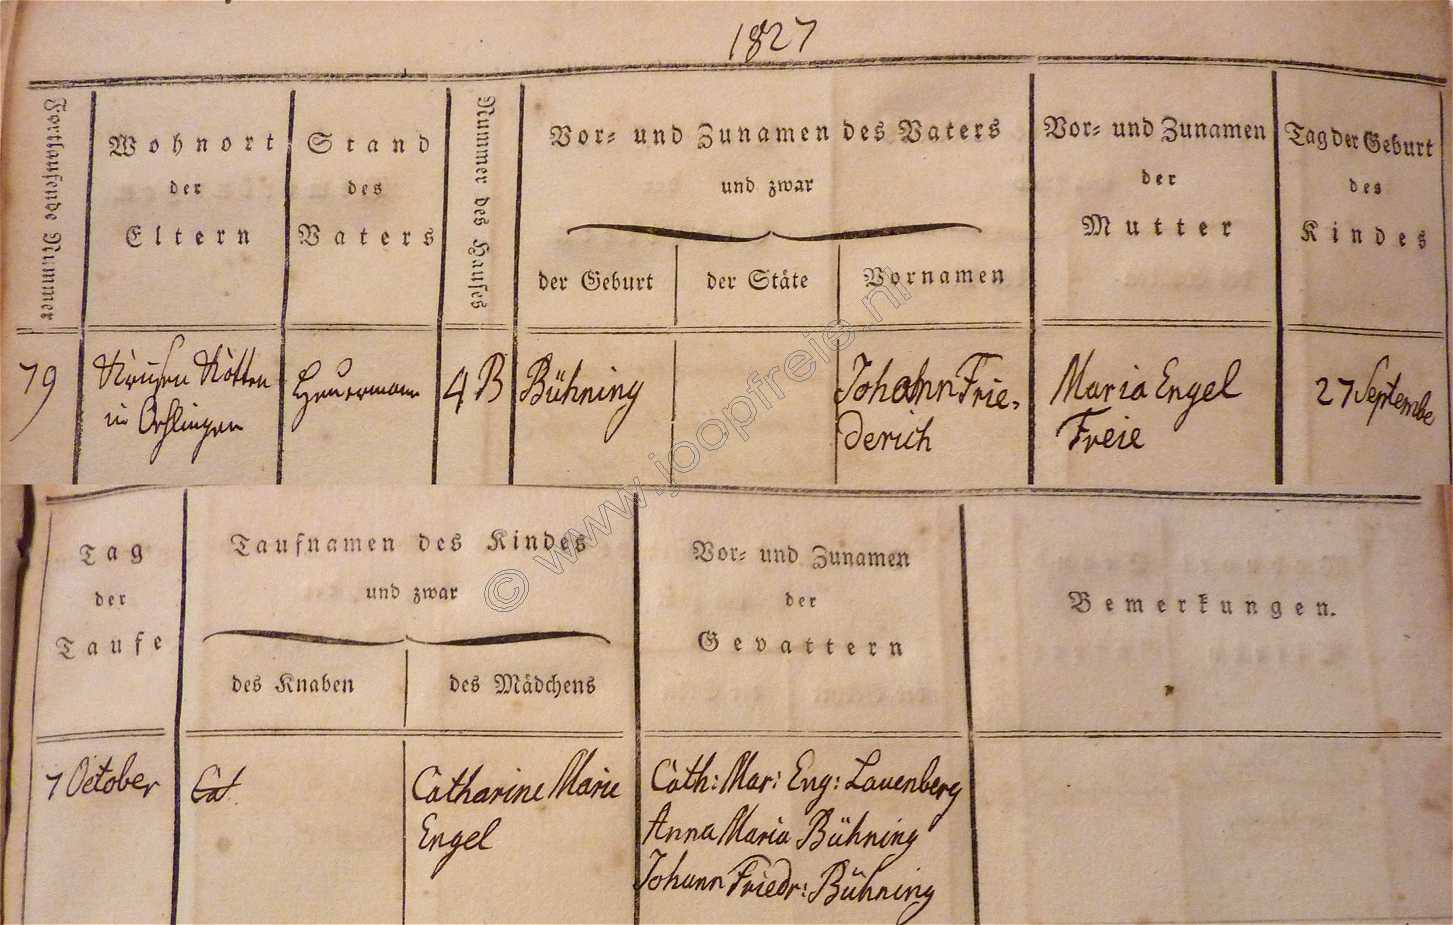 1827
Fortlaufende Nummer
Wohnort
der
Eltern
Stand
des
Vaters
Nummer des Hauses
Vor- und Zunamen des Vaters
und zwar
der Geburt
der Stäte
Vornamen
Vor- und Zunamen
der
Mutter
Tag der Geburt
des
Kindes
79
Kötten
in Oehlingen
Heuermann
4 B
Bühning
Johann Frie-
derich
Maria Engel
Freie
27 Septembe
Tag
der
Taufe
Taufnamen des Kindes
und zwar
des Knaben
des Mädchens
Vor- und Zunamen
der
Gevattern
Bemerkungen.
7 October
Cat
Catharine Marie
Engel
Cath: Mar: Eng: Lauenberg
Anna Maria Bühning
Johann Friedr: Bühning
© www.joopfreie.nl